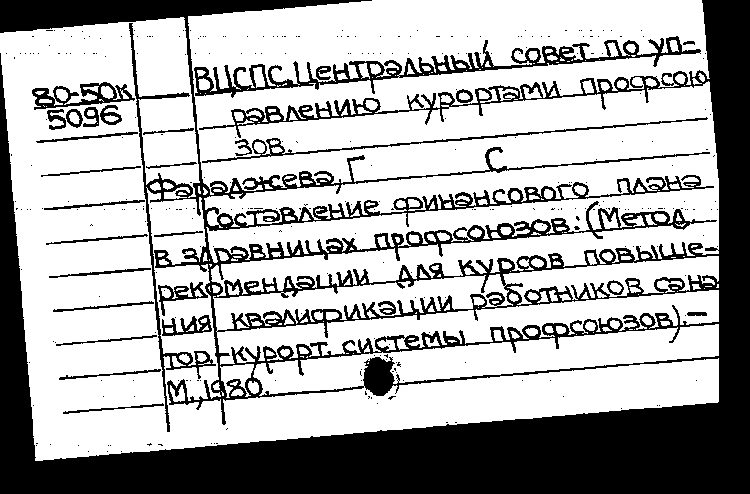 80-50к
5096
ВЦСПС. Центральный совет по уп-
равлению курортами профсою
зов.
Фараджева, Г С
Составление финансового плана
в здравницах профсоюзов: (Метод.
рекомендации для курсов повыше-
ния квалификации работников сана
тор.-курорт. системы профсоюзов).-
М., 1980.